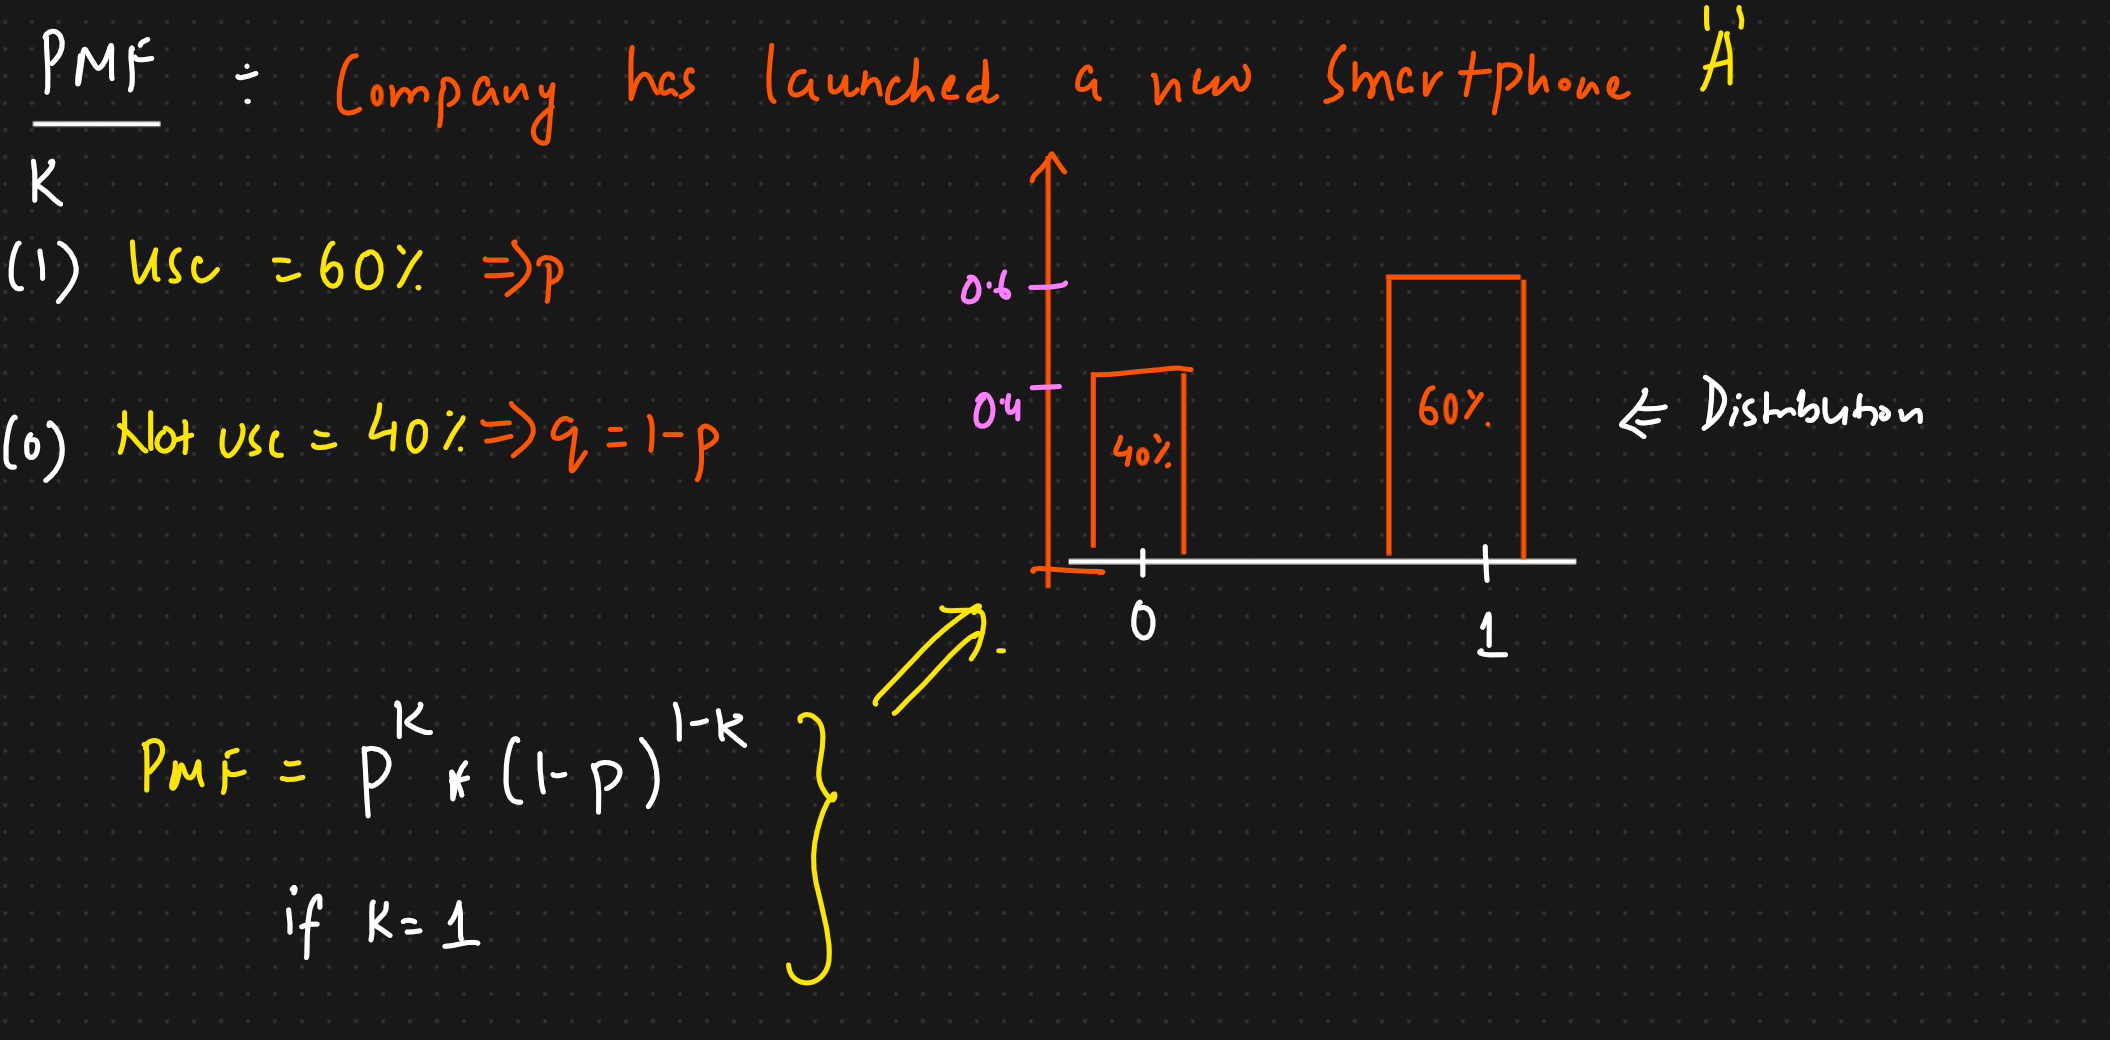 PMF ÷ Company has launched a new Smartphone "A"
K
(1) Use = 60% => p
(0) Not use = 40% => q = 1-p
0.6
0.4
40%
60%
⇐ Distribution
0 1
PMF = p^K * (1-p)^1-K
if K = 1